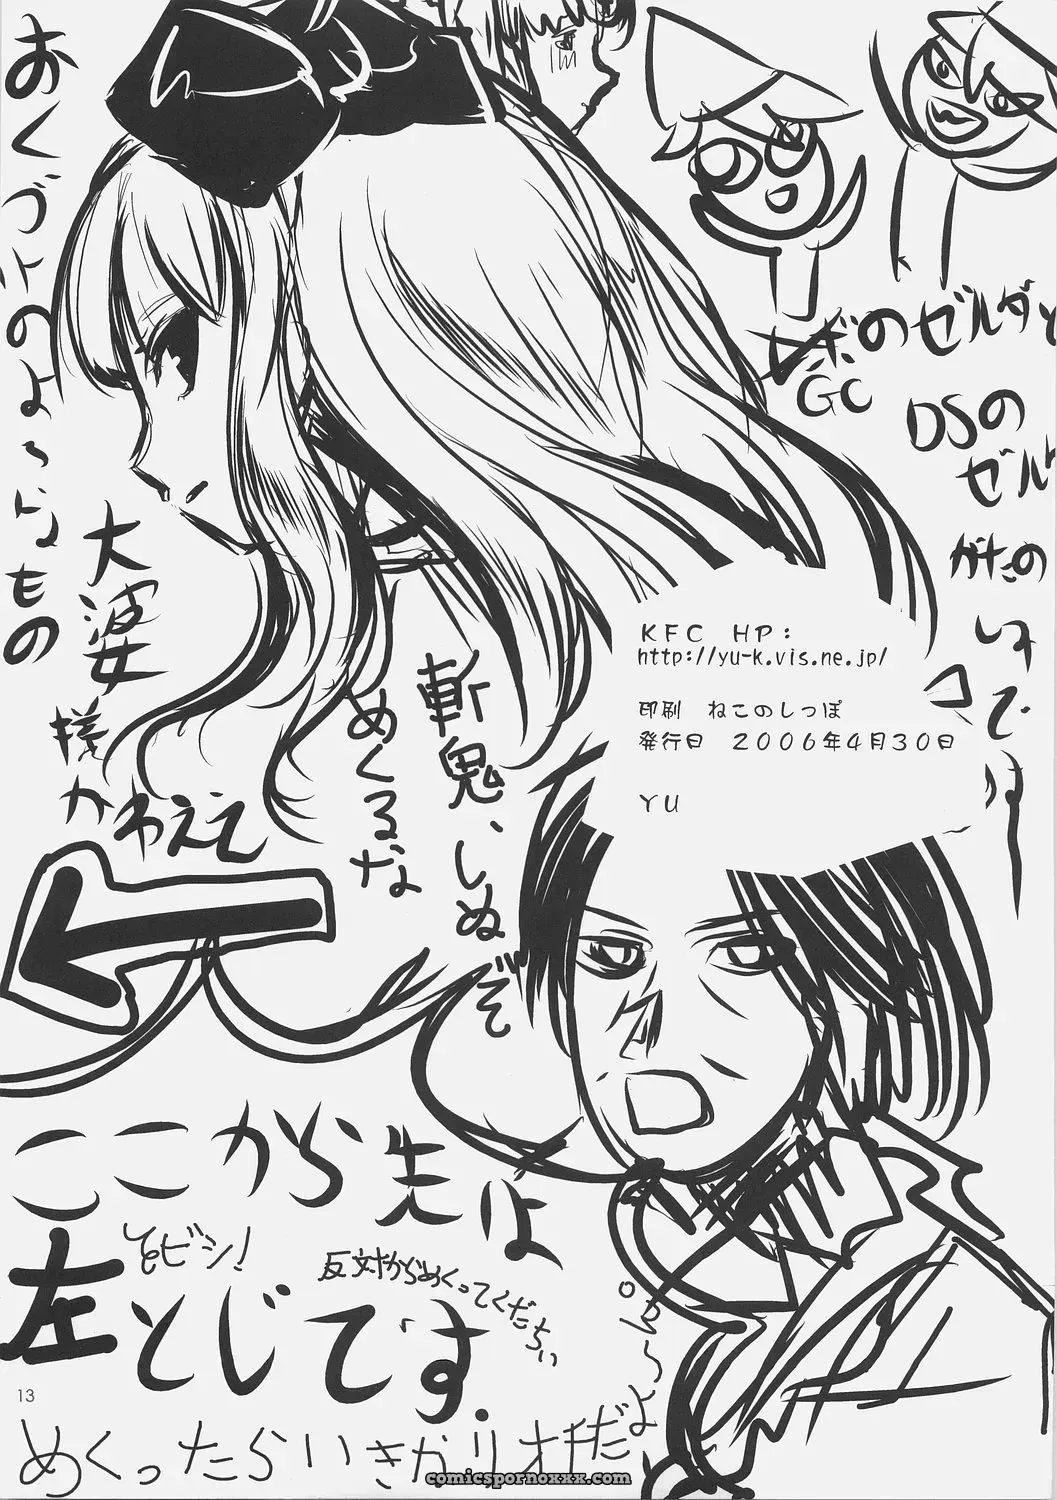 おくづけのよ〜なもの
レボのゼルダと
GC
DSの
ゼル
がたの
しみです
大婆
様かわええ
斬鬼、しぬぞ
めくるな
KFC HP:
http://yu-k.vis.ne.jp/
印刷 ねこのしっぽ
発行日 2006年4月30日
YU
ここから先は
左とじです.
とビシ!
反対からめくってくだちい
めくったらいきなりオチだ
よ
13
comicspornoxxx.com